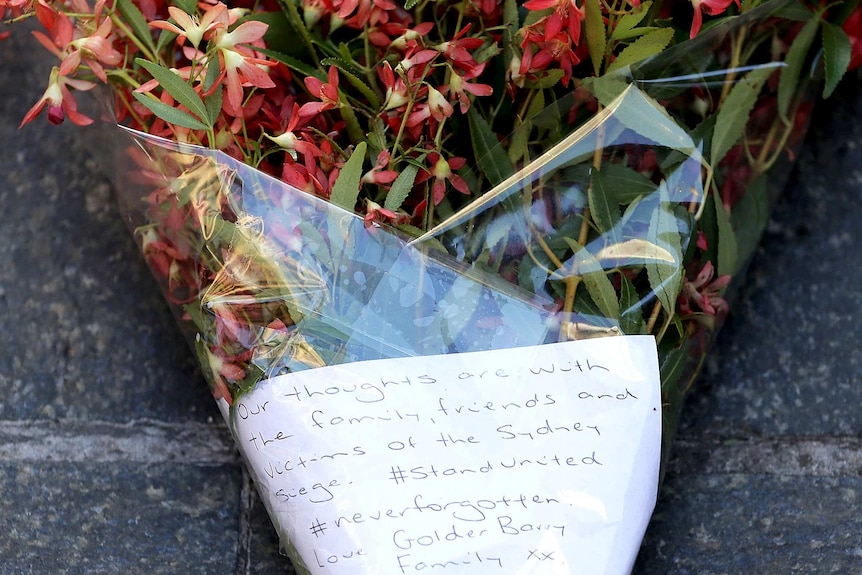 Our thoughts are with
the family, friends and
victims of the Sydney
siege. #Standunited
#neverforgotten.
Love Golder Barry
Family xx